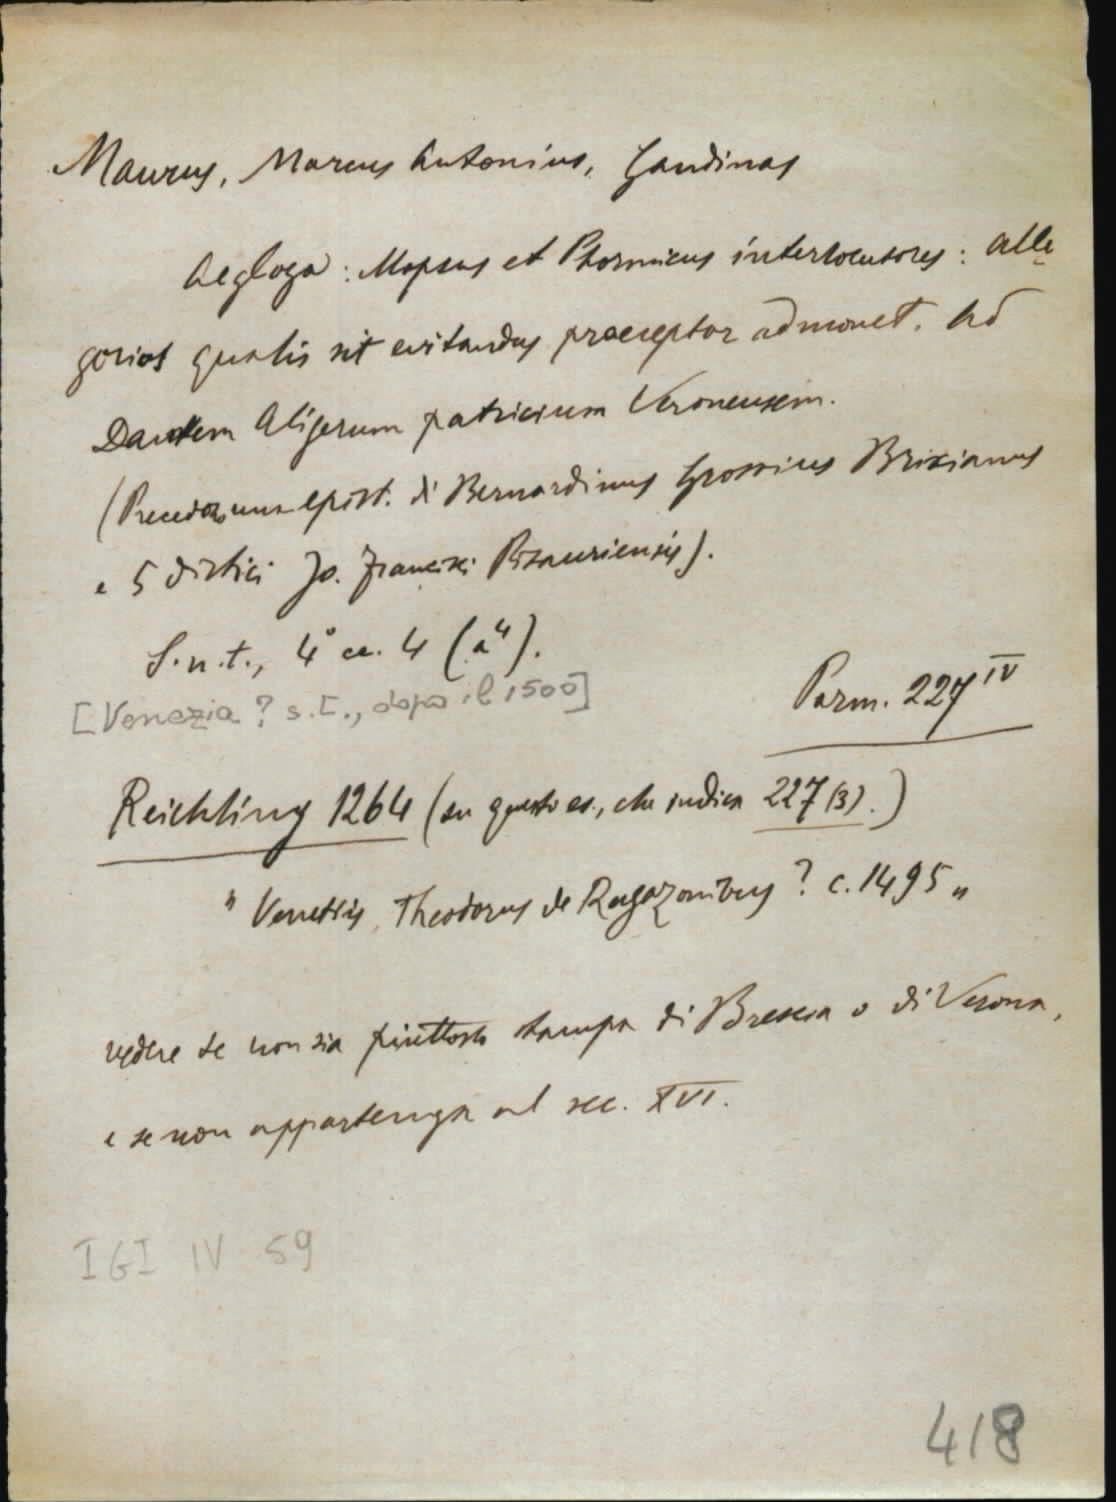 Maurus, Marcus Antonius, Gandinas
Aegloga: Mopsus et Phormicus interlocutores: alle
gorias qualis sit evitandus praeceptor admonet. Ad
Dantem Aligerum patricium Veronensem.
(Precedono una epist. di Bernardinus Grossius Brixianus
e 5 distici Jo. Francisci Pisauriensis).
S.n.t., 4° cc. 4 (a⁴).
[Venezia? s.t., dopo il 1500]
Parm. 227 IV
Reichling 1264 (su questo es., che indica 227 (3).)
" Venetiis, Theodorus de Ragazonibus? c. 1495 "
vedere se non sia piuttosto stampa di Brescia o di Verona,
e se non appartenga al sec. XVI.
IGI IV 59
418